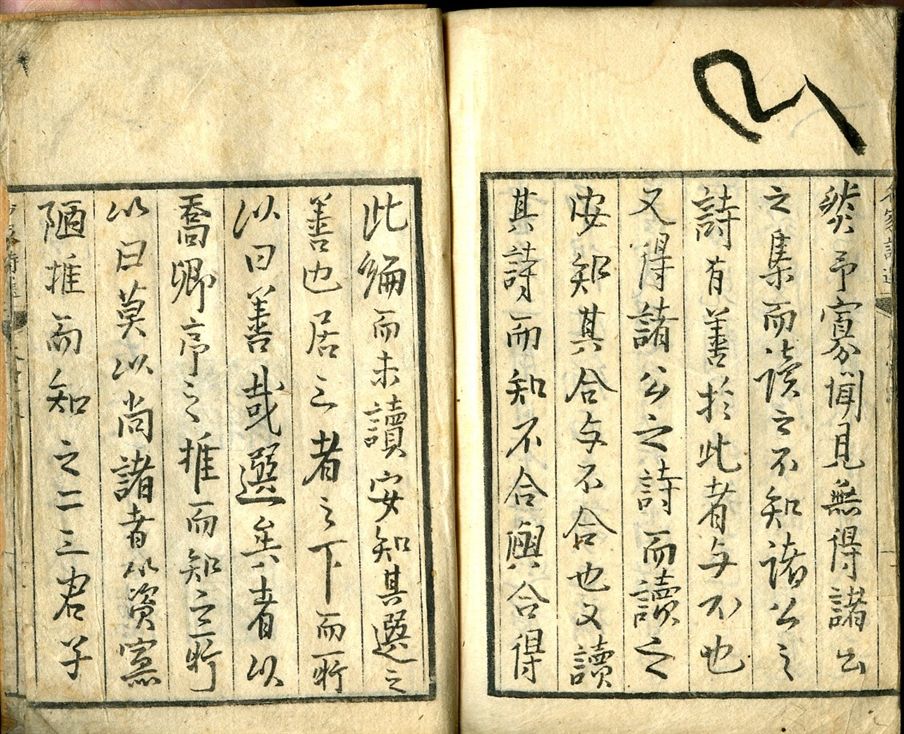 然予寡聞見無得諸公
之集而読之不知諸公之
詩有善於此者与不也
又得諸公之詩而讀之
安知其合与不合也又讀
其詩而知不合與合得
此編而未讀安知其選之
善也居之者之下而所
以曰善哉選矣者以
喬卿序之推而知之所
以曰莫以尚諸者以資寡
陋推而知之二三君子